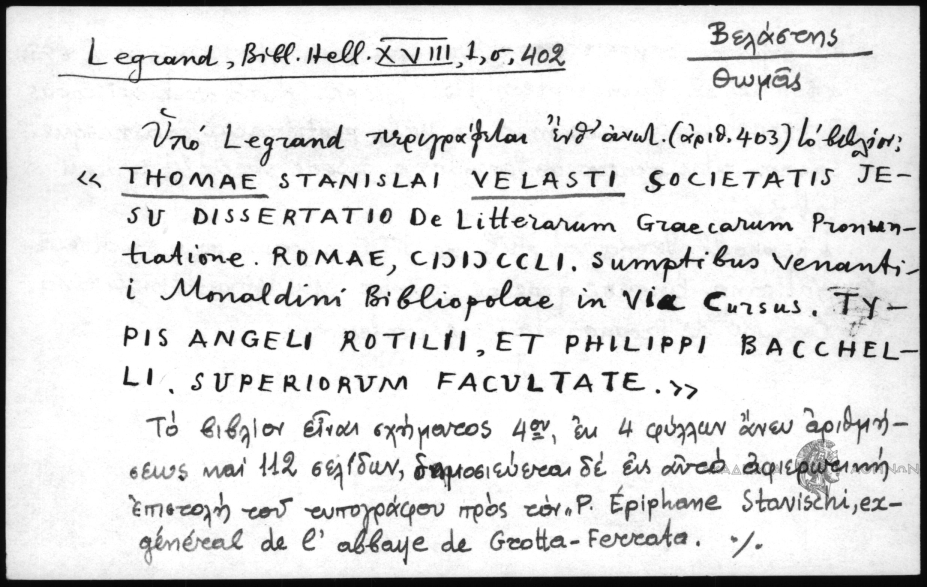 Βελάστης
Θωμᾶς
Legrand, Bibl. Hell. XVIII, 1, σ, 402
Ὑπό Legrand περιγράφεται ἐνθ' ἀνωτ. (ἀριθ. 403) τό βιβλίον:
« THOMAE STANISLAI VELASTI SOCIETATIS JE-
SU DISSERTATIO De Litterarum Graecarum Pronun-
tiatione. ROMAE, CIƆIƆCCLI. Sumptibus Venanti-
i Monaldini Bibliopolae in Via Cursus. TY-
PIS ANGELI ROTILII, ET PHILIPPI BACCHEL-
LI. SUPERIORUM FACULTATE. »
Τό βιβλίον εἶναι σχήματος 4ον, ἐκ 4 φύλλων ἄνευ ἀριθμή-
σεως καί 112 σελίδων, δημοσιεύεται δέ εἰς αὐτό ἀφιερωτική
ἐπιστολή τοῦ τυπογράφου πρὸς τόν „P. Épiphane Stavischi, ex-
général de l' abbaye de Grotta-Ferrata. ·/.